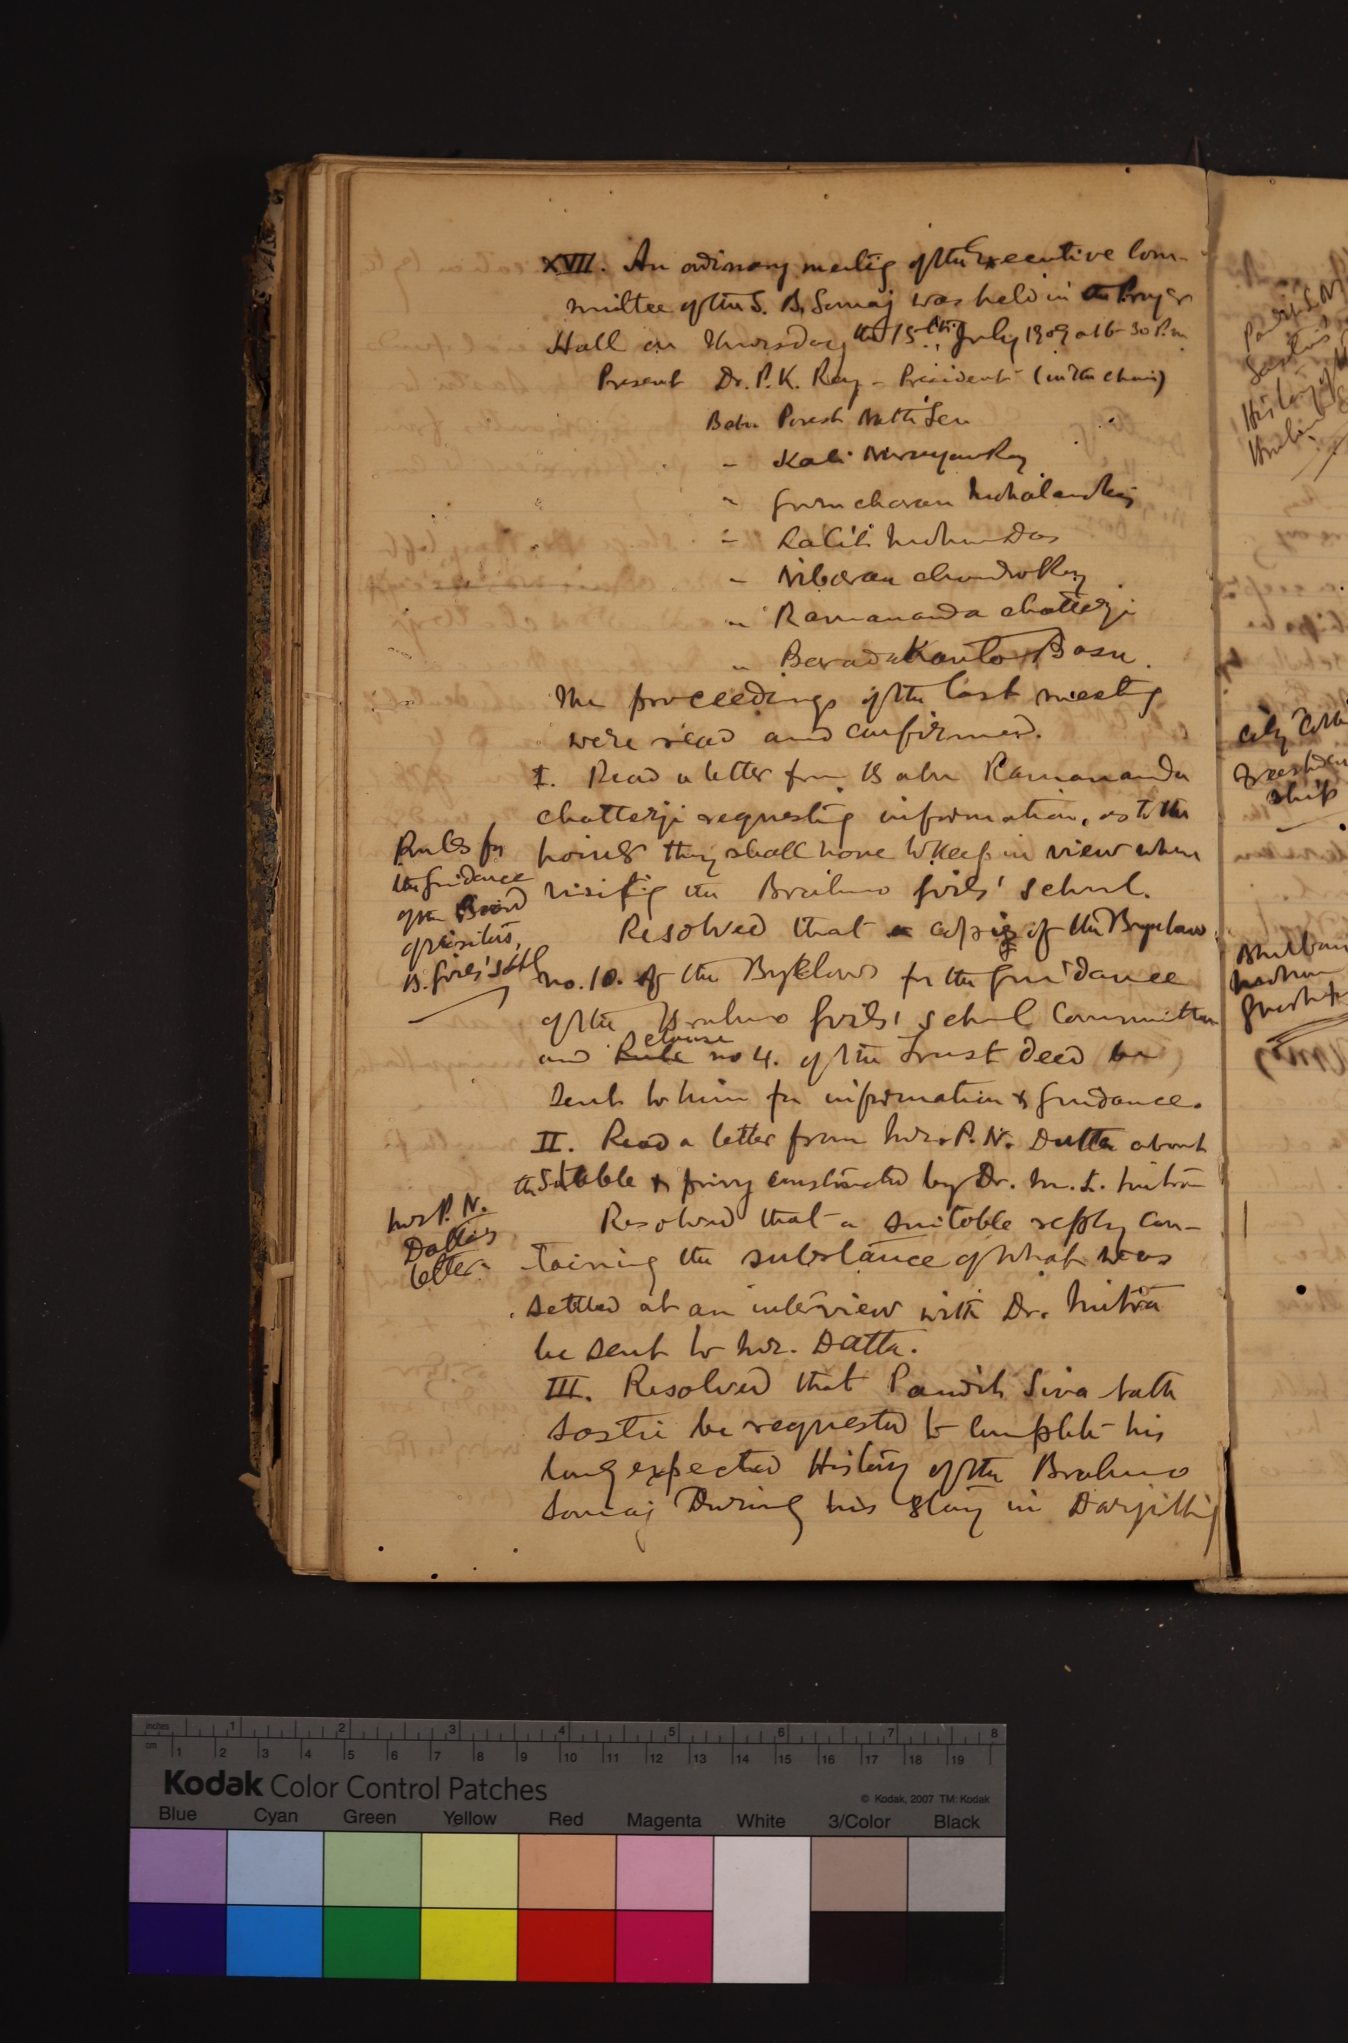 XVII. An ordinary meeting of the Executive Com-
mittee of the S. B. Somaj was held in the Prayer
Hall on Thursday the 15th July 1909 at 6-30 P.m.
Present Dr. P. K. Ray - President (in the chair)
Babu Poresh Nath Sen
" Kali Narayan Ray
" Guru charan Mohalanabis
" Lalit Mohun Das
" Nibaran chandra Ray
" Ramananda chatterji
" Barada Kanto Basu.
The proceedings of the last meeting
were read and confirmed.
I. Read a letter from Babu Ramananda
chatterji requesting information, as to the
points they shall have to keep in view when
visiting the Brahmo Girls' School.
Rules for
the guidance
of the Board
of visitors,
B. Girls' School
Resolved that copies of the Byelaws
no. 10. of the Byelaws for the guidance
of the Brahmo Girls' School Committee
and clause no 4. of the Trust deed be
sent to him for information & guidance.
II. Read a letter from Mr. P. N. Dutta about
the Stable & privy constructed by Dr. M. L. Mitra
Mr P. N.
Datta's
letter.
Resolved that a suitable reply con-
taining the substance of what was
settled at an interview with Dr. Mitra
be sent to Mr. Datta.
III. Resolved that Pandit Siva nath
Sastri be requested to complete his
long expected History of the Brahmo
Somaj During his stay in Darjiling
inches 1 2 3 4 5 6 7 8
cm 1 2 3 4 5 6 7 8 9 10 11 12 13 14 15 16 17 18 19
Kodak Color Control Patches
© Kodak, 2007 TM: Kodak
Blue Cyan Green Yellow Red Magenta White 3/Color Black